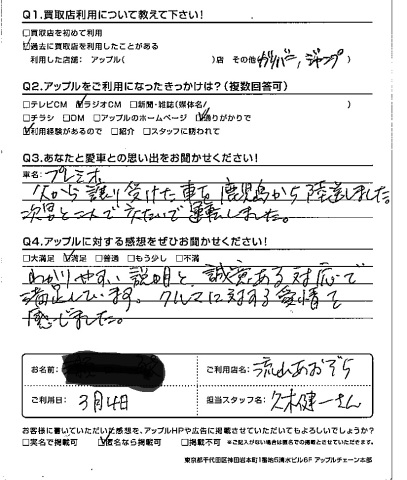 Q1.買取店利用について教えて下さい!
□買取店を初めて利用
☑過去に買取店を利用したことがある
利用した店舗: アップル( )店 その他 ガリバー, ジャンプ
Q2.アップルをご利用になったきっかけは?(複数回答可)
□テレビCM ☑ラジオCM □新聞・雑誌(媒体名/ )
□チラシ □DM □アップルのホームページ ☑通りがかりで
☑利用経験があるので □紹介 □スタッフに誘われて
Q3.あなたと愛車との思い出をお聞かせください!
車名: プレミオ
父から譲り受けた車を鹿児島から陸送しました。
次男と二人で交代で運転しました。
Q4.アップルに対する感想をぜひお聞かせください!
□大満足 ☑満足 □普通 □もう少し □不満
わかりやすい説明と、誠意ある対応で
満足しています。クルマに対する愛情を
感じました。
お名前:
ご利用店名: 流山おおぞら
ご利用日: 3月4日
担当スタッフ名: 久木健一さん
お客様に書いていただいた感想を、アップルHPや広告に掲載させていただいてもよろしいでしょうか?
□実名で掲載可 ☑匿名なら掲載可 □掲載不可 ※ご記入がない場合は匿名での掲載とさせていただきます。
東京都千代田区神田岩本町1番地5清水ビル6F アップルチェーン本部